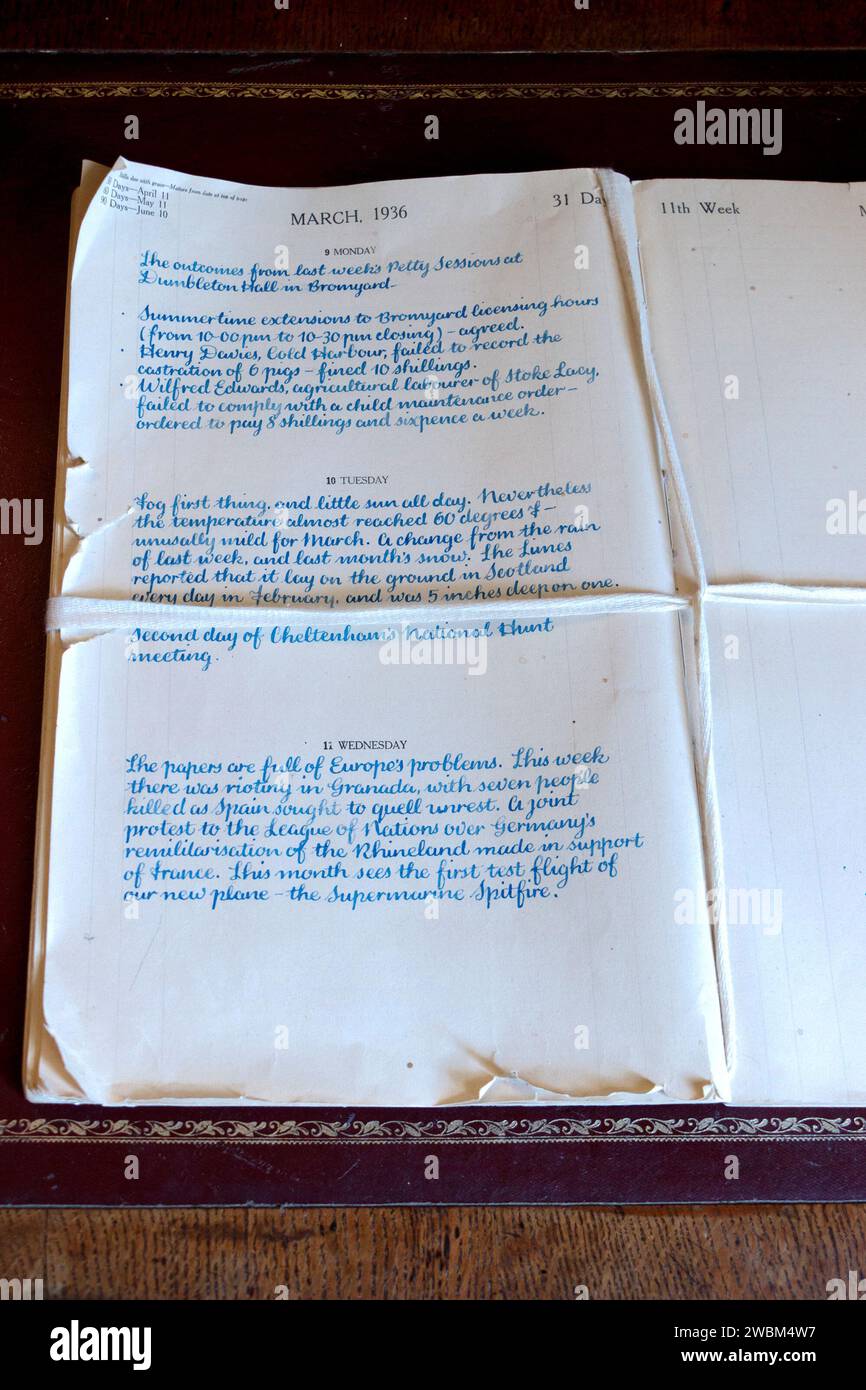 Bills due with grace—Mature from date at top of page
Days—April 11
Days—May 11
90 Days—June 10
MARCH, 1936
31 Da
11th Week
M
9 MONDAY
The outcomes from last week's Petty Sessions at
Dumbleton Hall in Bromyard-
· Summertime extensions to Bromyard licensing hours
(from 10-00pm to 10-30pm closing) - agreed.
· Henry Davies, Cold Harbour, failed to record the
castration of 6 pigs - fined 10 shillings.
· Wilfred Edwards, agricultural labourer of Stoke Lacy,
failed to comply with a child maintenance order -
ordered to pay 8 shillings and sixpence a week.
10 TUESDAY
Fog first thing, and little sun all day. Nevertheless
the temperature almost reached 60 degrees F -
unusally mild for March. A change from the rain
of last week, and last month's snow. The Times
reported that it lay on the ground in Scotland
every day in February, and was 5 inches deep on one.
Second day of Cheltenham's National Hunt
meeting.
11 WEDNESDAY
The papers are full of Europe's problems. This week
there was rioting in Granada, with seven people
killed as Spain sought to quell unrest. A joint
protest to the League of Nations over Germany's
remililarisation of the Rhineland made in support
of France. This month sees the first test flight of
our new plane - the Supermarine Spitfire.
alamy
alamy
Image ID: 2WBM4W7
www.alamy.com